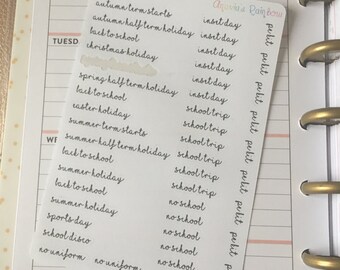 Rainbow
autumn term starts
autumn half term holiday
back to school
christmas holiday
spring half term holiday
back to school
easter holiday
summer term starts
summer half term holiday
back to school
summer holiday
back to school
summer holiday
sports day
school disco
no uniform no uniform
inset day
inset day
inset day
inset day
inset day
inset day
school trip
school trip
school trip
school trip
school trip
school trip
no school
no school
no school
no school
pe kit
pe kit
pe kit
pe kit
pe kit
pe kit
pe kit
pe kit
TUESD
WE